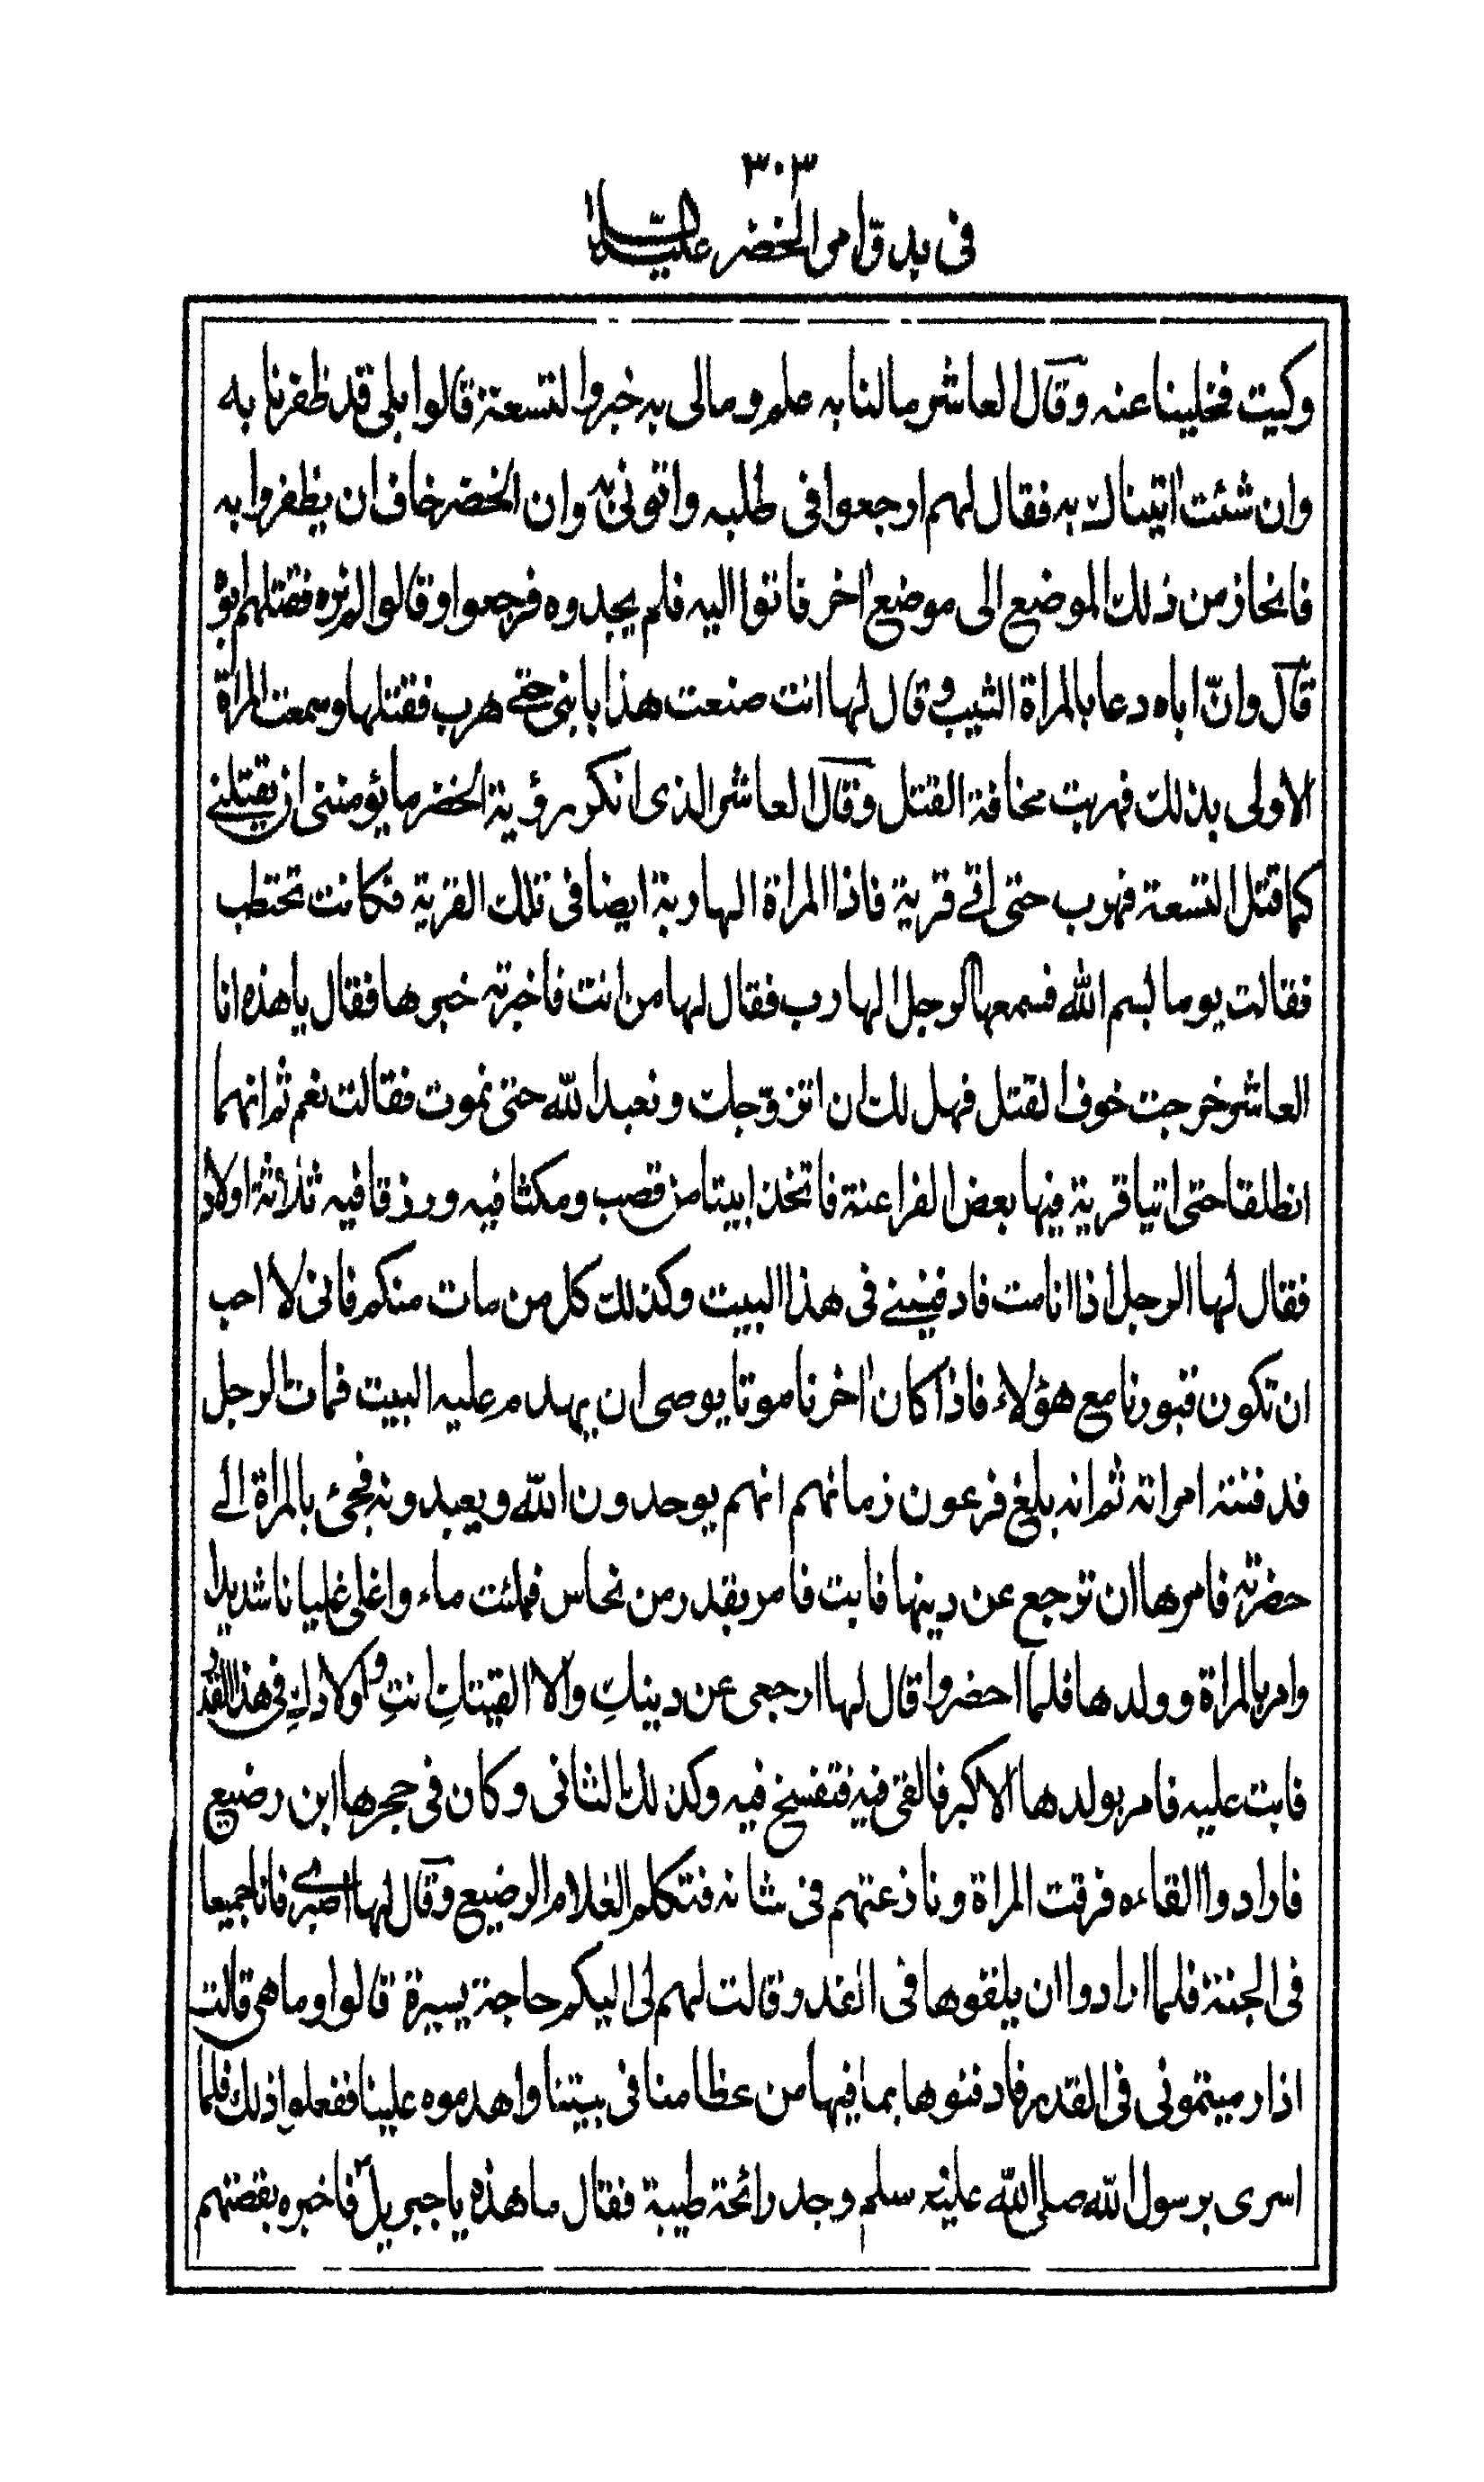 ٣٠٣
فى بدوّ امر الخضر عليه السلام
وكيت فخلينا عنه وقال العاشر مالنا به علم ومالى به خبر والتسعة قالوا بلى قد ظفرنا به
وان شئت اتيناك به فقال لهم ارجعوا فى طلبه واتونى به وان الخضر خاف ان يظفروا به
فانحاز من ذلك الموضع الى موضع اخر فاتوا اليه فلم يجدوه فرجعوا وقالوا لم نره فقتلهم ابوه
قال وانّ اباه دعا بالمراة الثيب وقال لها انت صنعت هذا بابنى حتى هرب فقتلها وسمعت المراة
الاولى بذلك فهربت مخافة القتل وقال العاشر الذى انكر رؤية الخضر ما يؤمننى ان يقتلنى
كما قتل التسعة فهرب حتى اتى قرية فاذا المراة الهاربة ايضا فى تلك القرية فكانت تحتطب
فقالت يوما بسم الله فسمعها الرجل الهارب فقال لها من انت فاخبرته خبرها فقال يا هذه انا
العاشر خرجت خوف القتل فهل لك ان اتزوّجك ونعبد الله حتى نموت فقالت نعم ثم انهما
انطلقا حتى اتيا قرية فيها بعض الفراعنة فاتخذا بيتا من قصب ومكثا فيه ورزقا فيه ثلاثة اولاد
فقال لها الرجل اذا انا مت فادفنينى فى هذا البيت وكذلك كل من مات منكم فانى لا احب
ان تكون قبورنا مع هؤلاء فاذا كان اخرنا موتا يوصى ان يهدم عليه البيت فمات الرجل
فدفنته امراته ثم انه بلغ فرعون زمانهم انهم يوحدون الله ويعبدونه فجئ بالمراة الى
حضرته فامرها ان ترجع عن دينها فابت فامر بقدر من نحاس فملئت ماء واغلى غليانا شديدا
وامر بالمراة وولدها فلما احضروا قال لها ارجعى عن دينكِ والا القيتكِ انتِ واولادكِ فى هذا القدر
فابت عليه فامر بولدها الاكبر فالقى فيه فتفسخ فيه وكذلك الثانى وكان فى حجرها ابن رضيع
فارادوا القاءه فرقت المراة ونازعتهم فى شانه فتكلم الغلام الرضيع وقال لها اصبرى فانا جميعا
فى الجنة فلما ارادوا ان يلقوها فى القدر قالت لهم لى اليكم حاجة يسيرة قالوا وما هى قالت
اذا رميتمونى فى القدر فادفنوها بما فيها من عظامنا فى بيتنا واهدموه علينا ففعلوا ذلك فلما
اسرى برسول الله صلى الله عليه وسلم وجد رائحة طيبة فقال ما هذه يا جبريل فاخبره بقصتهم